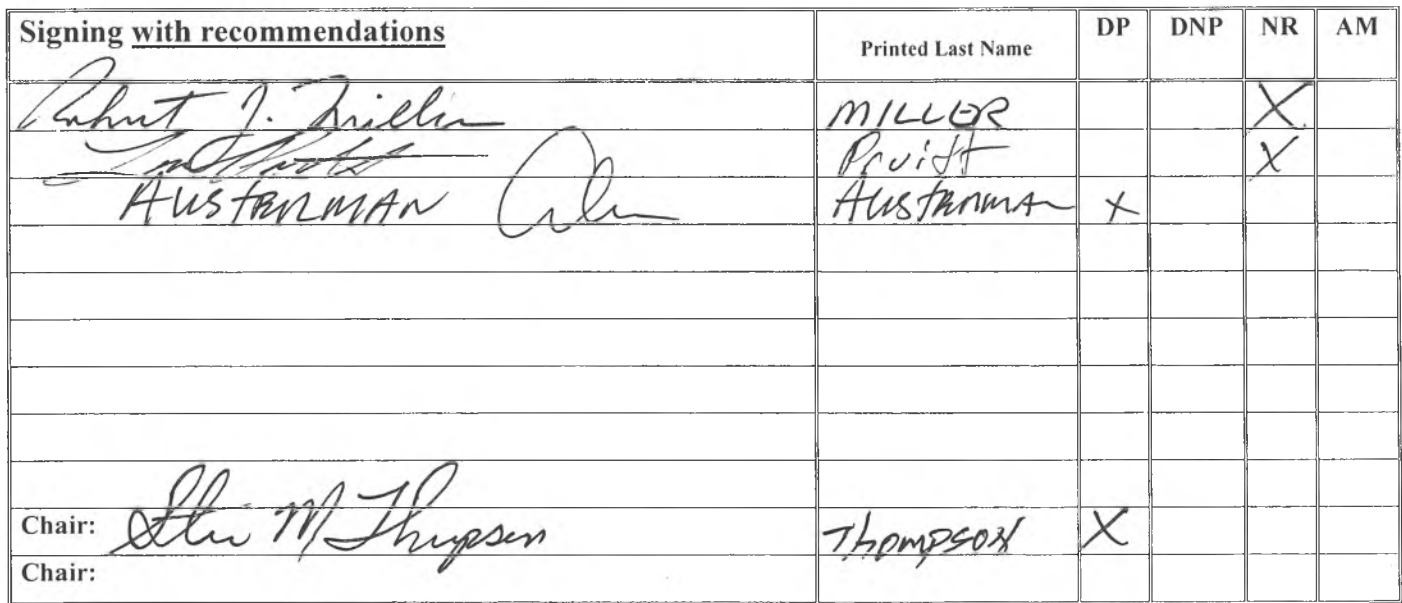 Signing with recommendations Printed Last Name DP DNP NR AM
Robert J. Miller MILLER X
Pruitt X
AUSTERMAN AUSTERMAN X
Chair: M Thompson Thompson X
Chair: